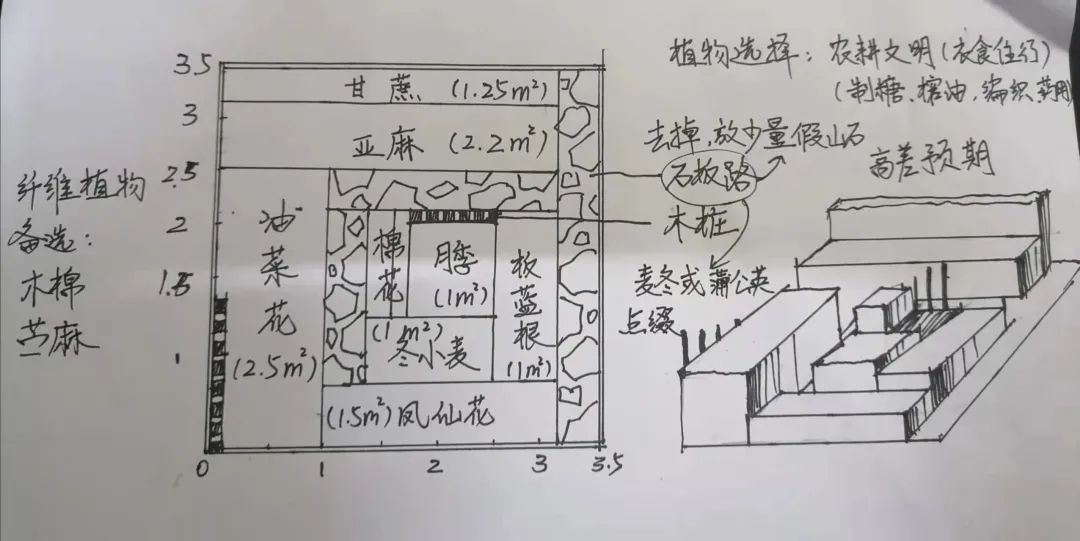 植物选择：农耕文明（衣食住行）
（制糖、榨油、编织、药用）
3.5
甘蔗（1.25m²）
3
亚麻（2.2m²）
去掉，放少量假山石
石板路
高差预期
纤维植物
备选：
木棉
苎麻
2.5
2
1.5
1
油菜花
（2.5m²）
棉花
（1m²）
月季
（1m²）
板蓝根
（1m²）
冬小麦
（1.5m²）凤仙花
木桩
麦冬或蒲公英
点缀
0
1
2
3
3.5